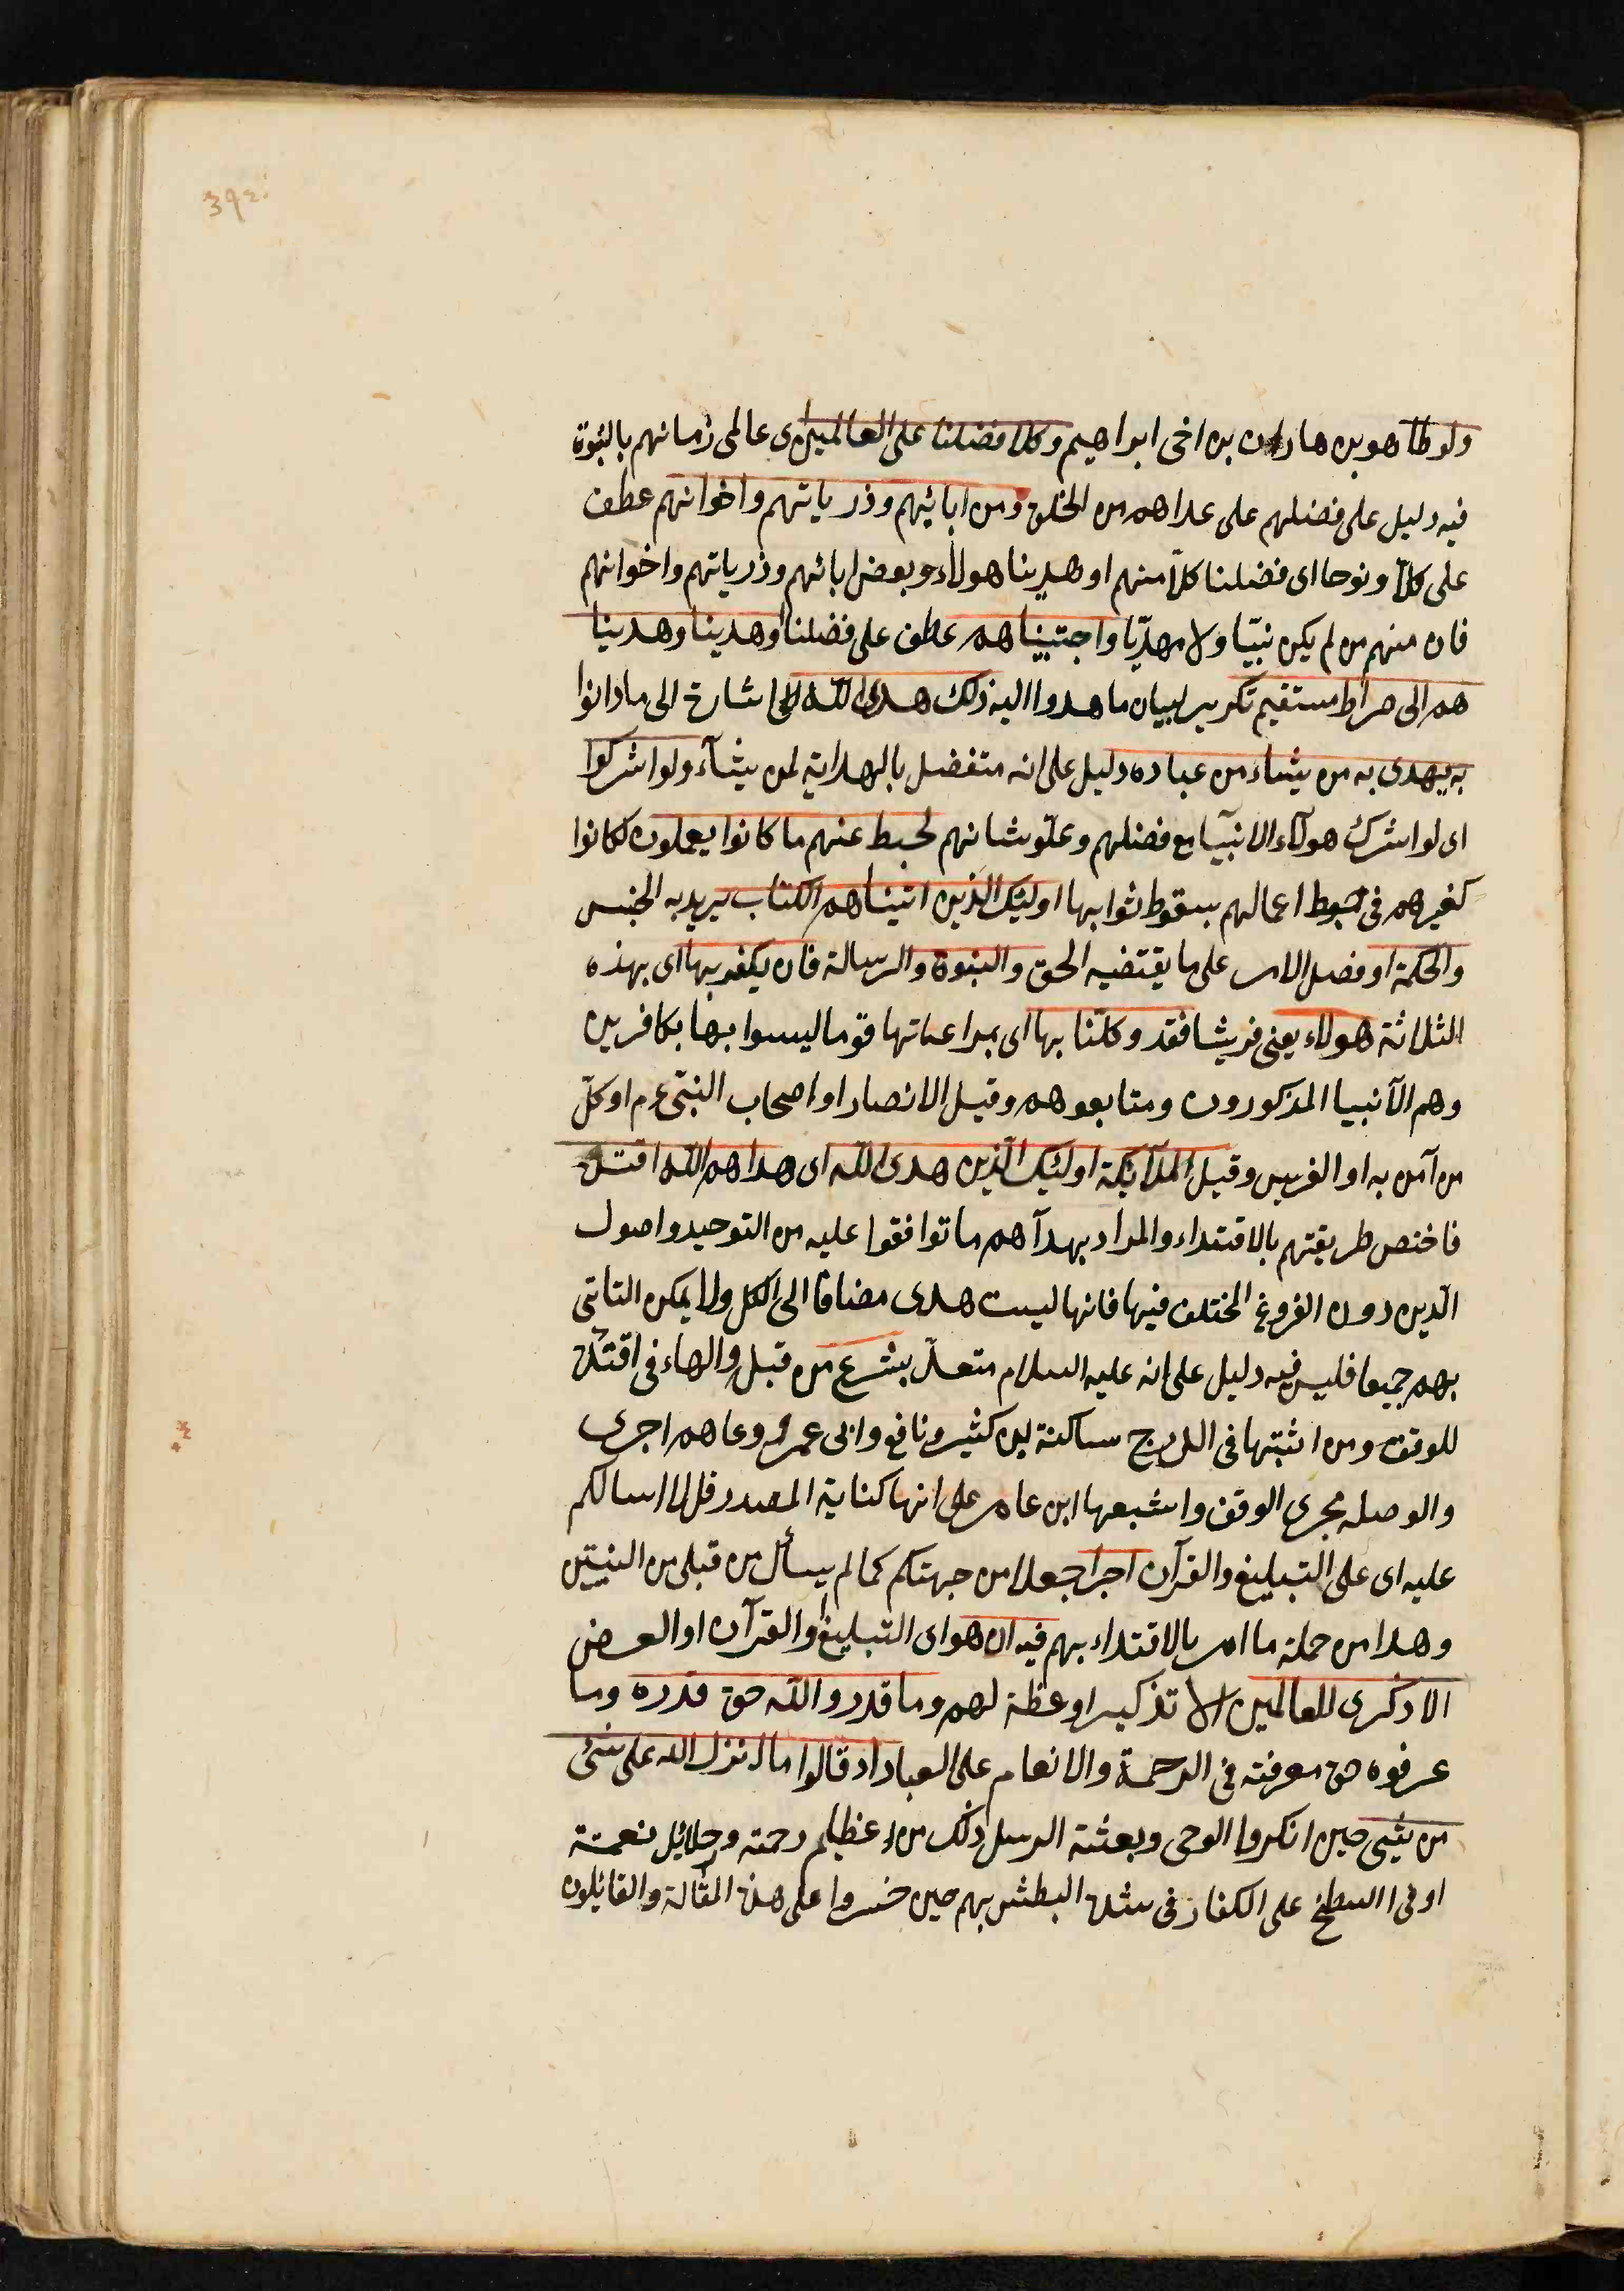 ٣٩٤
ولوطا هو بن هاران بن اخى ابراهيم وكلا فضلنا على العالمين اى عالمى زمانهم بالنبوة
فيه دليل على فضلهم على عداهم من الخلق ومن ابائهم وذرياتهم واخوانهم عطف
على كلاّ ونوحا اى فضلنا كلاّ منهم او هدينا هولاء وبعض ابائهم وذرياتهم واخوانهم
فان منهم من لم يكن نبيّا ولا مهديّا واجتبيناهم عطف على فضلنا وهدينا وهدينا
هم الى صراط مستقيم تكرير لبيان ما هدوا اليه ذلك هدى الله اشارة الى ما دانوا
به يهدى به من يشاء من عباده دليل على انه متفضل بالهداية لمن يشآء ولو اشركوا
اى لو اشرك هولآء الانبيآ مع فضلهم وعلو شانهم لحبط عنهم ما كانوا يعملون لكانوا
كغيرهم فى حبوط اعمالهم بسقوط ثوابها اوليك الذين اتيناهم الكتاب يريد به الجنس
والحكمة او فصل الامر على ما يقتضيه الحق والنبوة والرسالة فان يكفر بها اى بهذه
الثلاثة هولاء يعنى قريشا فقد وكلّنا بها اى بمراعاتها قوما ليسوا بها بكافرين
وهم الآنبيا المذكورون ومتابعوهم وقيل الانصار او اصحاب النبىّ عم او كلّ
من آمن به او الفرس وقيل الملآئكة اولئك الّذين هدى الله اى هداهم الله اقتده
فاختص طريقتهم بالاقتداء والمراد بهدآهم ما توافقوا عليه من التوحيد واصول
الّدين دون الفروع المختلف فيها فانها ليست هدى مضافا الى الكل ولا يمكن التاسّى
بهم جميعا فليس فيه دليل على انه عليه السلام متعبّد بشرع من قبل والهاء فى اقتده
للوقف ومن اثبتها فى الدرج ساكنة لابن كثير ونافع وابى عمرو وعاصم اجرى
والوصل مجرى الوقف واشبعها ابن عامر على انها كناية المصدر قل لا اسالكم
عليه اى على التبليغ والقرآن اجرا جعلا من جهتكم كما لم يسأل من قبلى من النبيّين
وهدا من جملة ما امر بالاقتداء بهم فيه ان هو اى التبليغ او القرآن او الغرض
الا ذكرى للعالمين الا تذكيرا وعظة لهم وما قدروا الله حق قدره وما
عرفوه حق معرفته فى الرحمة والانعام على العباد اذ قالوا ما انزل الله على شئ
من شئ حين انكروا الوحى وبعثة الرسل ذلك من عظايم رحمته وجلائل نعمته
او فى السخط على الكفار فى شدة البطش بهم حين جسروا على هذه المقالة والقائلون